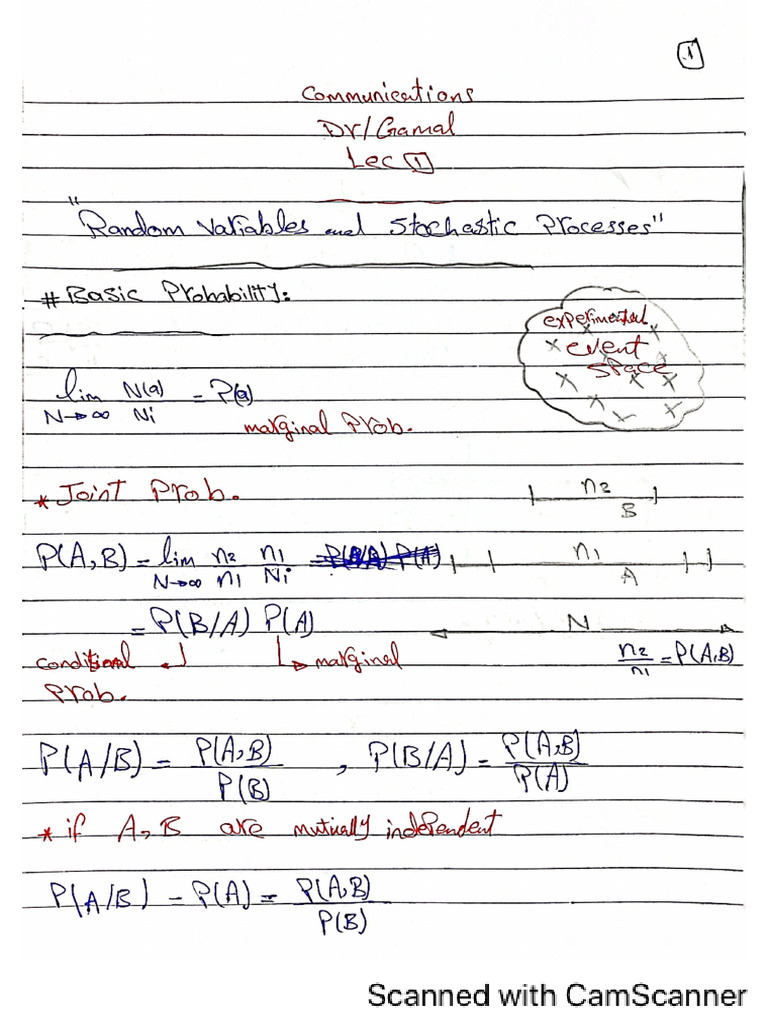 1
Communications
Dr/Gamal
Lec 1
"Random Variables and Stochastic Processes"
# Basic Probability:
experimental
event
space
lim N(a) / Ni = P(a)
N→∞
marginal Prob.
* Joint Prob.
n2
B
P(A,B) = lim n2/n1 n1/Ni = P(B/A) P(A)
N→∞
n1
A
= P(B/A) P(A)
N
conditional Prob.
marginal
n2/n1 = P(A,B)
P(A/B) = P(A,B)/P(B) , P(B/A) = P(A,B)/P(A)
* if A, B are mutually independent
P(A/B) = P(A) = P(A,B)/P(B)
Scanned with CamScanner